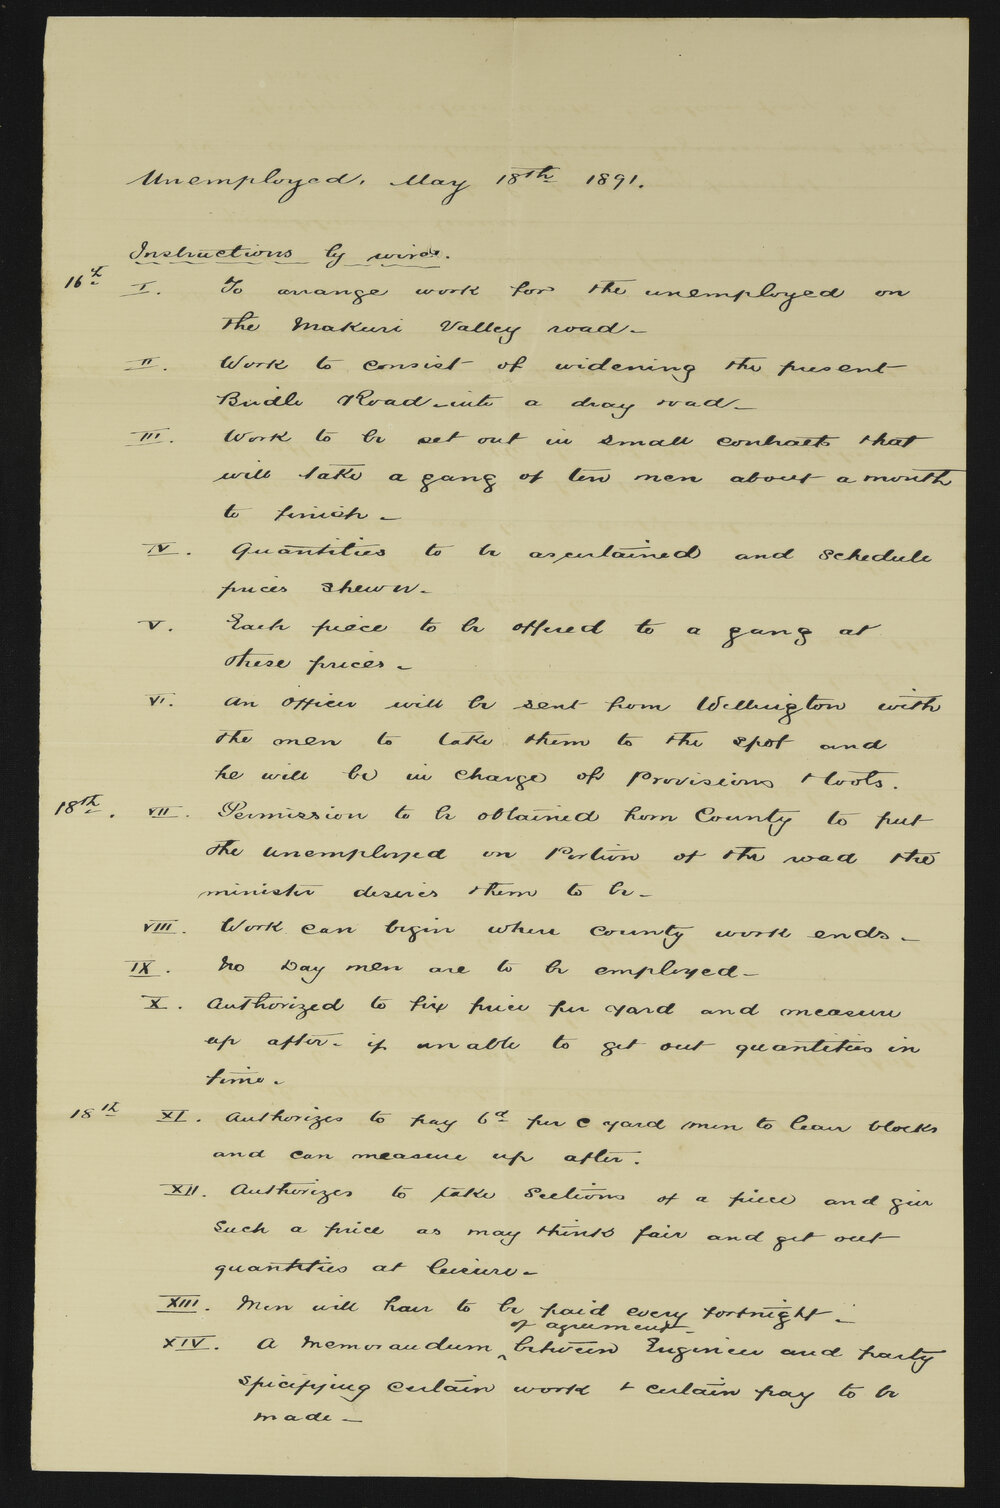 Unemployed. May 18th 1891.
Instructions by wire.
16th I. To arrange work for the unemployed on
the Makuri Valley road -
II. Work to consist of widening the present
Bridle Road into a dray road -
III. Work to be set out in small contracts that
will take a gang of ten men about a month
to finish -
IV. Quantities to be ascertained and schedule
prices shewn -
V. Each piece to be offered to a gang at
these prices -
VI. An officer will be sent from Wellington with
the men to take them to the spot and
he will be in charge of Provisions + tools.
18th. VII. Permission to be obtained from County to put
the unemployed on Portion of the road the
minister desires them to be -
VIII. Work can begin where county work ends -
IX. No Day men are to be employed -
X. Authorized to fix price per yard and measure
up after - if unable to get out quantities in
time -
18th XI. Authorizes to pay 6d per c yard men to leave blocks
and can measure up after.
XII. Authorizes to take Sections of a piece and give
Such a price as may think fair and get out
quantities at leisure -
XIII. Men will have to be paid every fortnight -
of agreement
XIV. A Memorandum ^ between Engineer and party
spicifying certain work + certain pay to be
made -